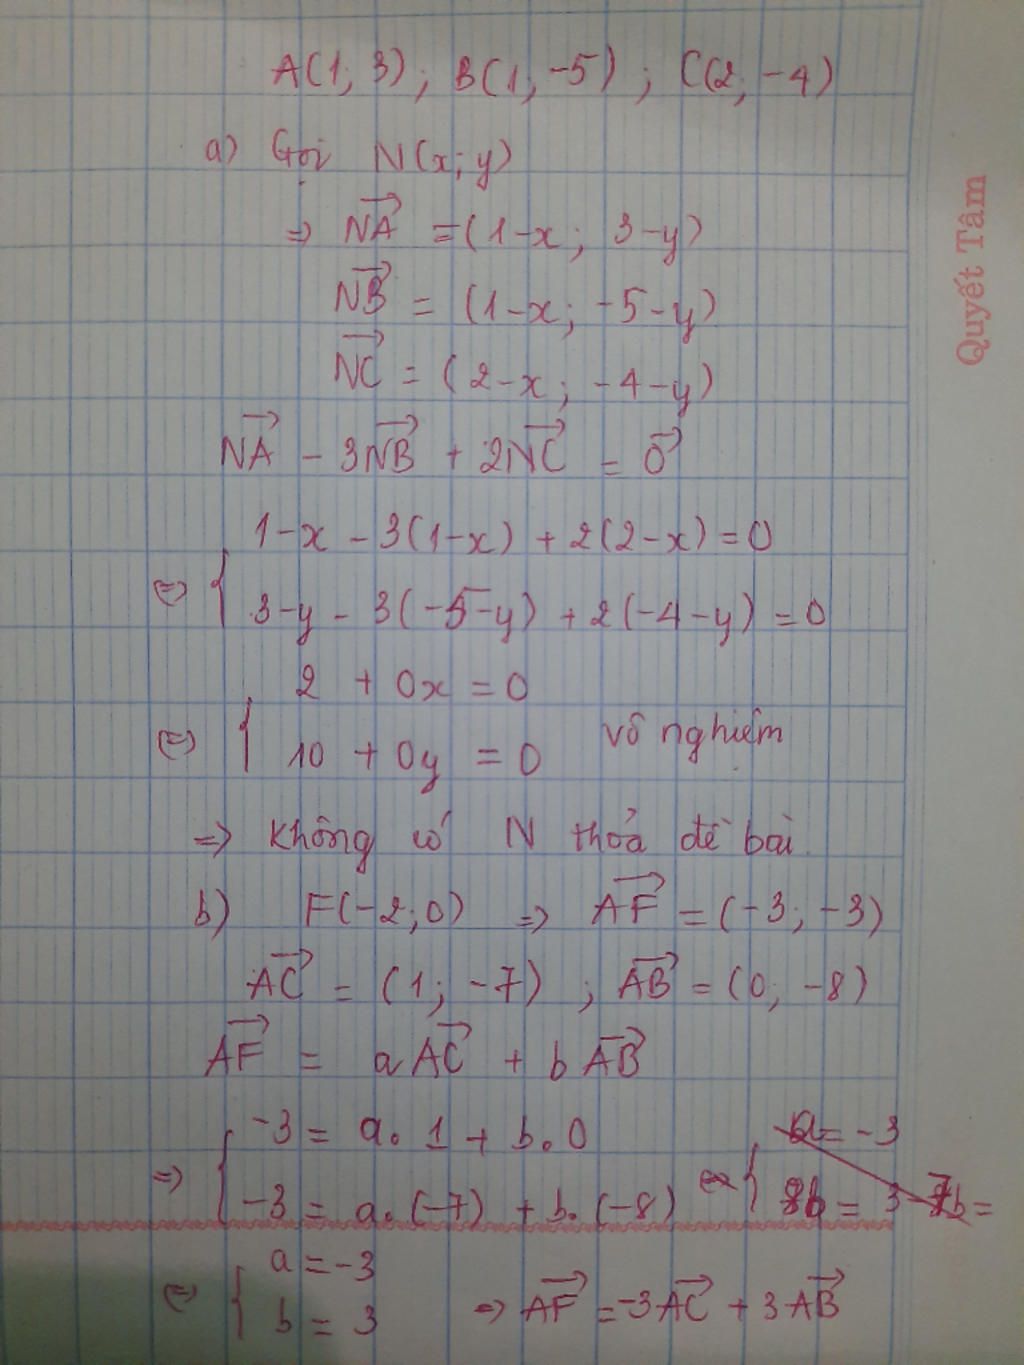 A(1; 3) ; B(1; -5) ; C(2; -4)
a) Gọi N(x; y)
⇒ \overrightarrow{NA} = (1-x; 3-y)
\overrightarrow{NB} = (1-x; -5-y)
\overrightarrow{NC} = (2-x; -4-y)
\overrightarrow{NA} - 3\overrightarrow{NB} + 2\overrightarrow{NC} = \overrightarrow{0}
1-x - 3(1-x) + 2(2-x) = 0
⇔ { 3-y - 3(-5-y) + 2(-4-y) = 0
2 + 0x = 0
⇔ { 10 + 0y = 0 vô nghiệm
⇒ không có N thỏa đề bài.
b) F(-2; 0) ⇒ \overrightarrow{AF} = (-3; -3)
\overrightarrow{AC} = (1; -7) ; \overrightarrow{AB} = (0; -8)
\overrightarrow{AF} = a\overrightarrow{AC} + b\overrightarrow{AB}
-3 = a.1 + b.0 a = -3
⇒ { -3 = a.(-7) + b.(-8) ⇔ { 8b = 3 7b =
a = -3
⇔ { b = 3 ⇒ \overrightarrow{AF} = -3\overrightarrow{AC} + 3\overrightarrow{AB}
Quyết Tâm